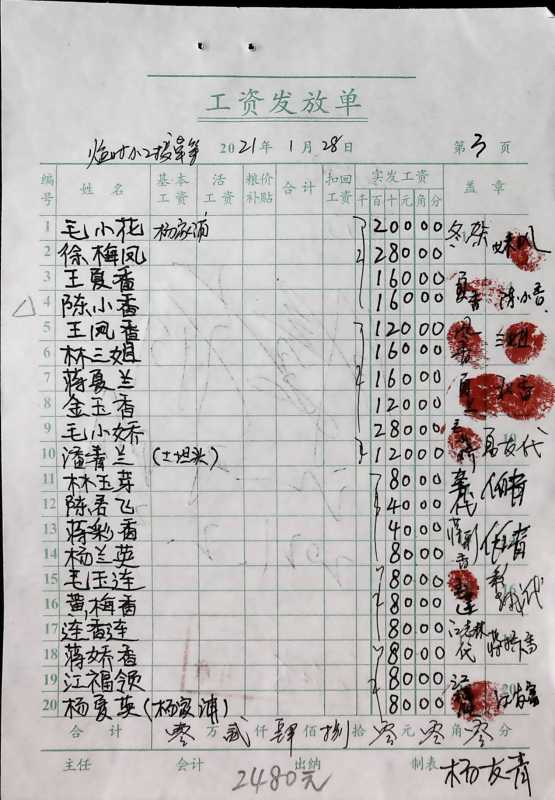 工资发放单
2021年 1月 28日 第3页
编号 姓名 基本工资 活工资 粮价补贴 合计 扣回工资 实发工资 千百十元角分 盖章
1 毛小花 杨家浦 20000
2 徐梅凤 28000
3 王夏香 16000
4 陈小香 16000 陈小香
5 王凤香 12000
6 林三姐 16000
7 蒋夏兰 16000
8 金玉香 12000
9 毛小娇 28000
10 潘青兰 12000
11 林玉芽 8000
12 陈君飞 4000 代
13 蒋彩香 4000 蒋彩香
14 杨兰英 8000
15 毛玉连 8000
16 黄梅香 8000
17 连香连 8000
18 蒋娇香 8000 代
19 江福领 8000
20 杨夏英(杨家浦) 8000
合计 零万贰仟肆佰捌拾零元零角零分
主任 会计 出纳 制表 杨友青
2480元